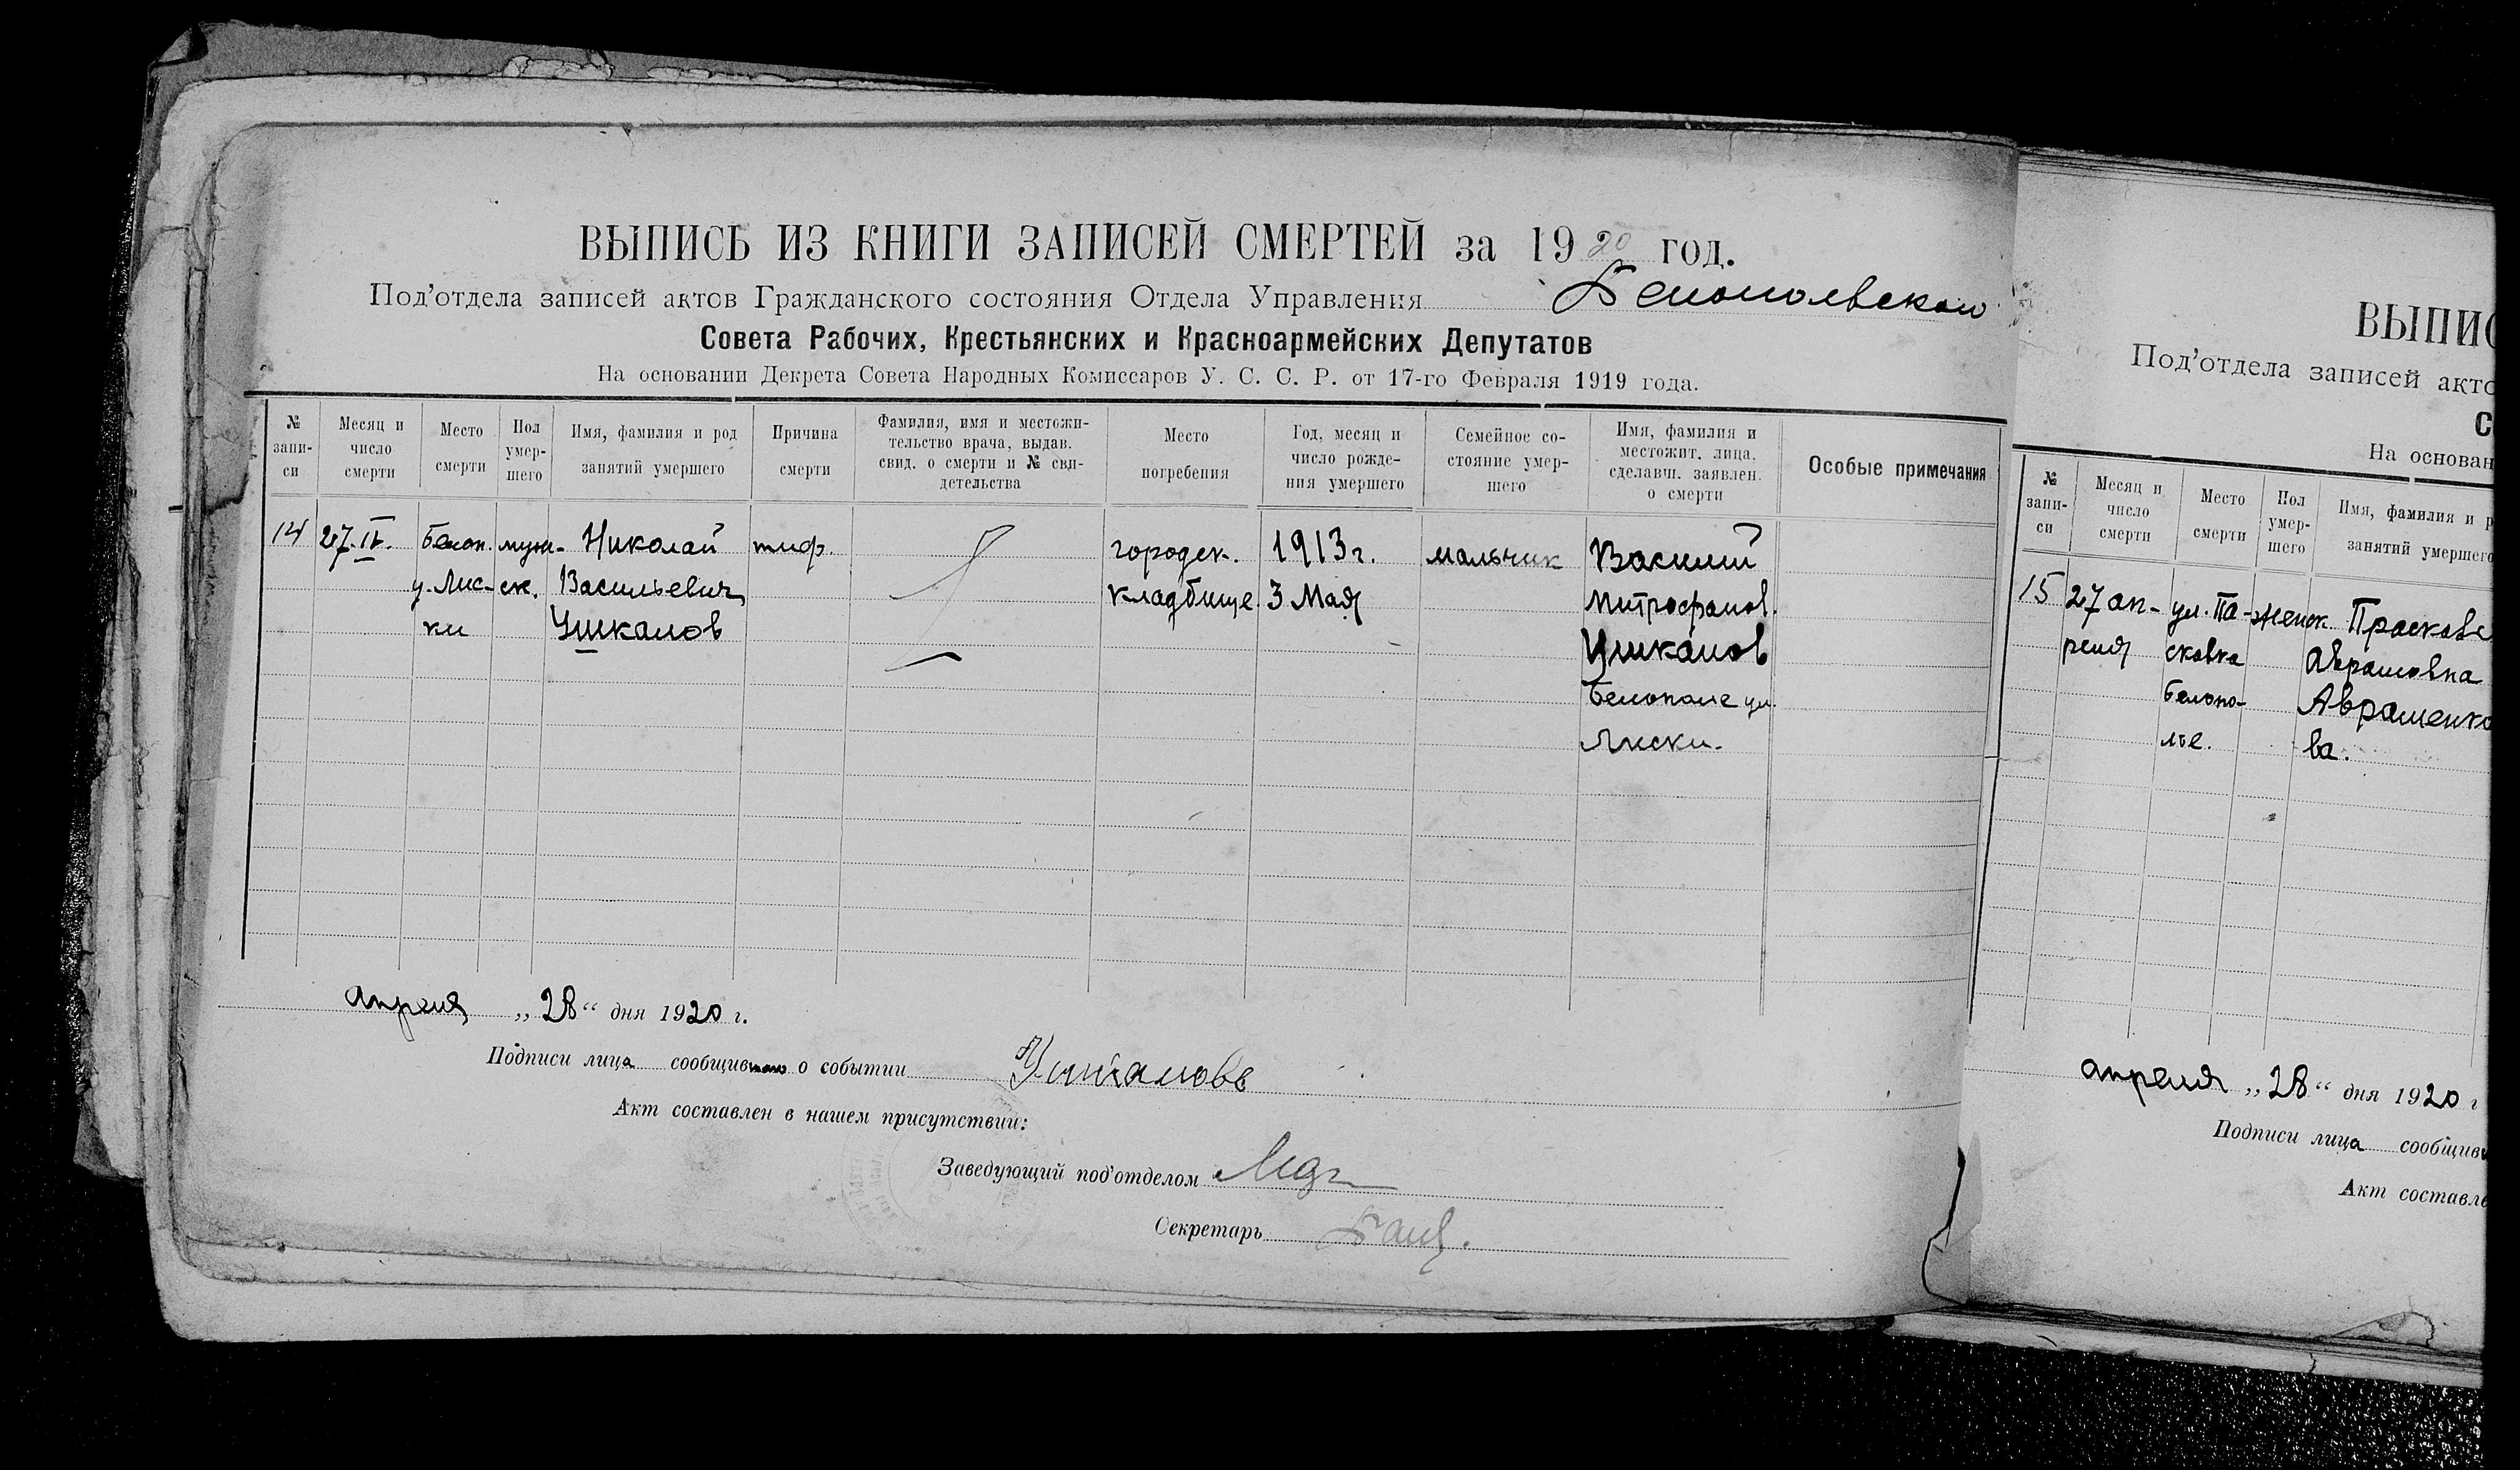 ВЫПИСЬ ИЗ КНИГИ ЗАПИСЕЙ СМЕРТЕЙ за 1920 год.
Под'отдела записей актов Гражданского состояния Отдела Управления Белопольского
Совета Рабочих, Крестьянских и Красноармейских Депутатов
На основании Декрета Совета Народных Комиссаров У. С. С. Р. от 17-го Февраля 1919 года.
№ запи-си
Месяц и число смерти
Место смерти
Пол умер-шего
Имя, фамилия и род занятий умершего
Причина смерти
Фамилия, имя и местожи-тельство врача, выдав. свид. о смерти и № сви-детельства
Место погребения
Год, месяц и число рожде-ния умершего
Семейное со-стояние умер-шего
Имя, фамилия и местожит. лица, сделавш. заявлен. о смерти
Особые примечания
14 27.IV. Белоп. муж- Николай тиф. городск. 1913 г. мальчик Василий
у. Лис- ск. Васильевич кладбище. 3 Мая Митрофанов.
ки Ушканов Ушканов
Белополье ул.
Лиски.
апреля „28“ дня 1920 г.
Подписи лица сообщившего о событии Ушкановъ
Акт составлен в нашем присутствии:
Заведующий под'отделом
Секретарь
ВЫПИС
Под'отдела записей акто
С
На основан
№ запи-си
Месяц и число смерти
Место смерти
Пол умер-шего
Имя, фамилия и р
занятий умершего
15 27 ап- ул. Па- женск. Прасковь
реля сковка Аврамовна
Белопо- Авраменко
лье. ва.
апреля „28“ дня 1920 г
Подписи лица сообщив
Акт составле